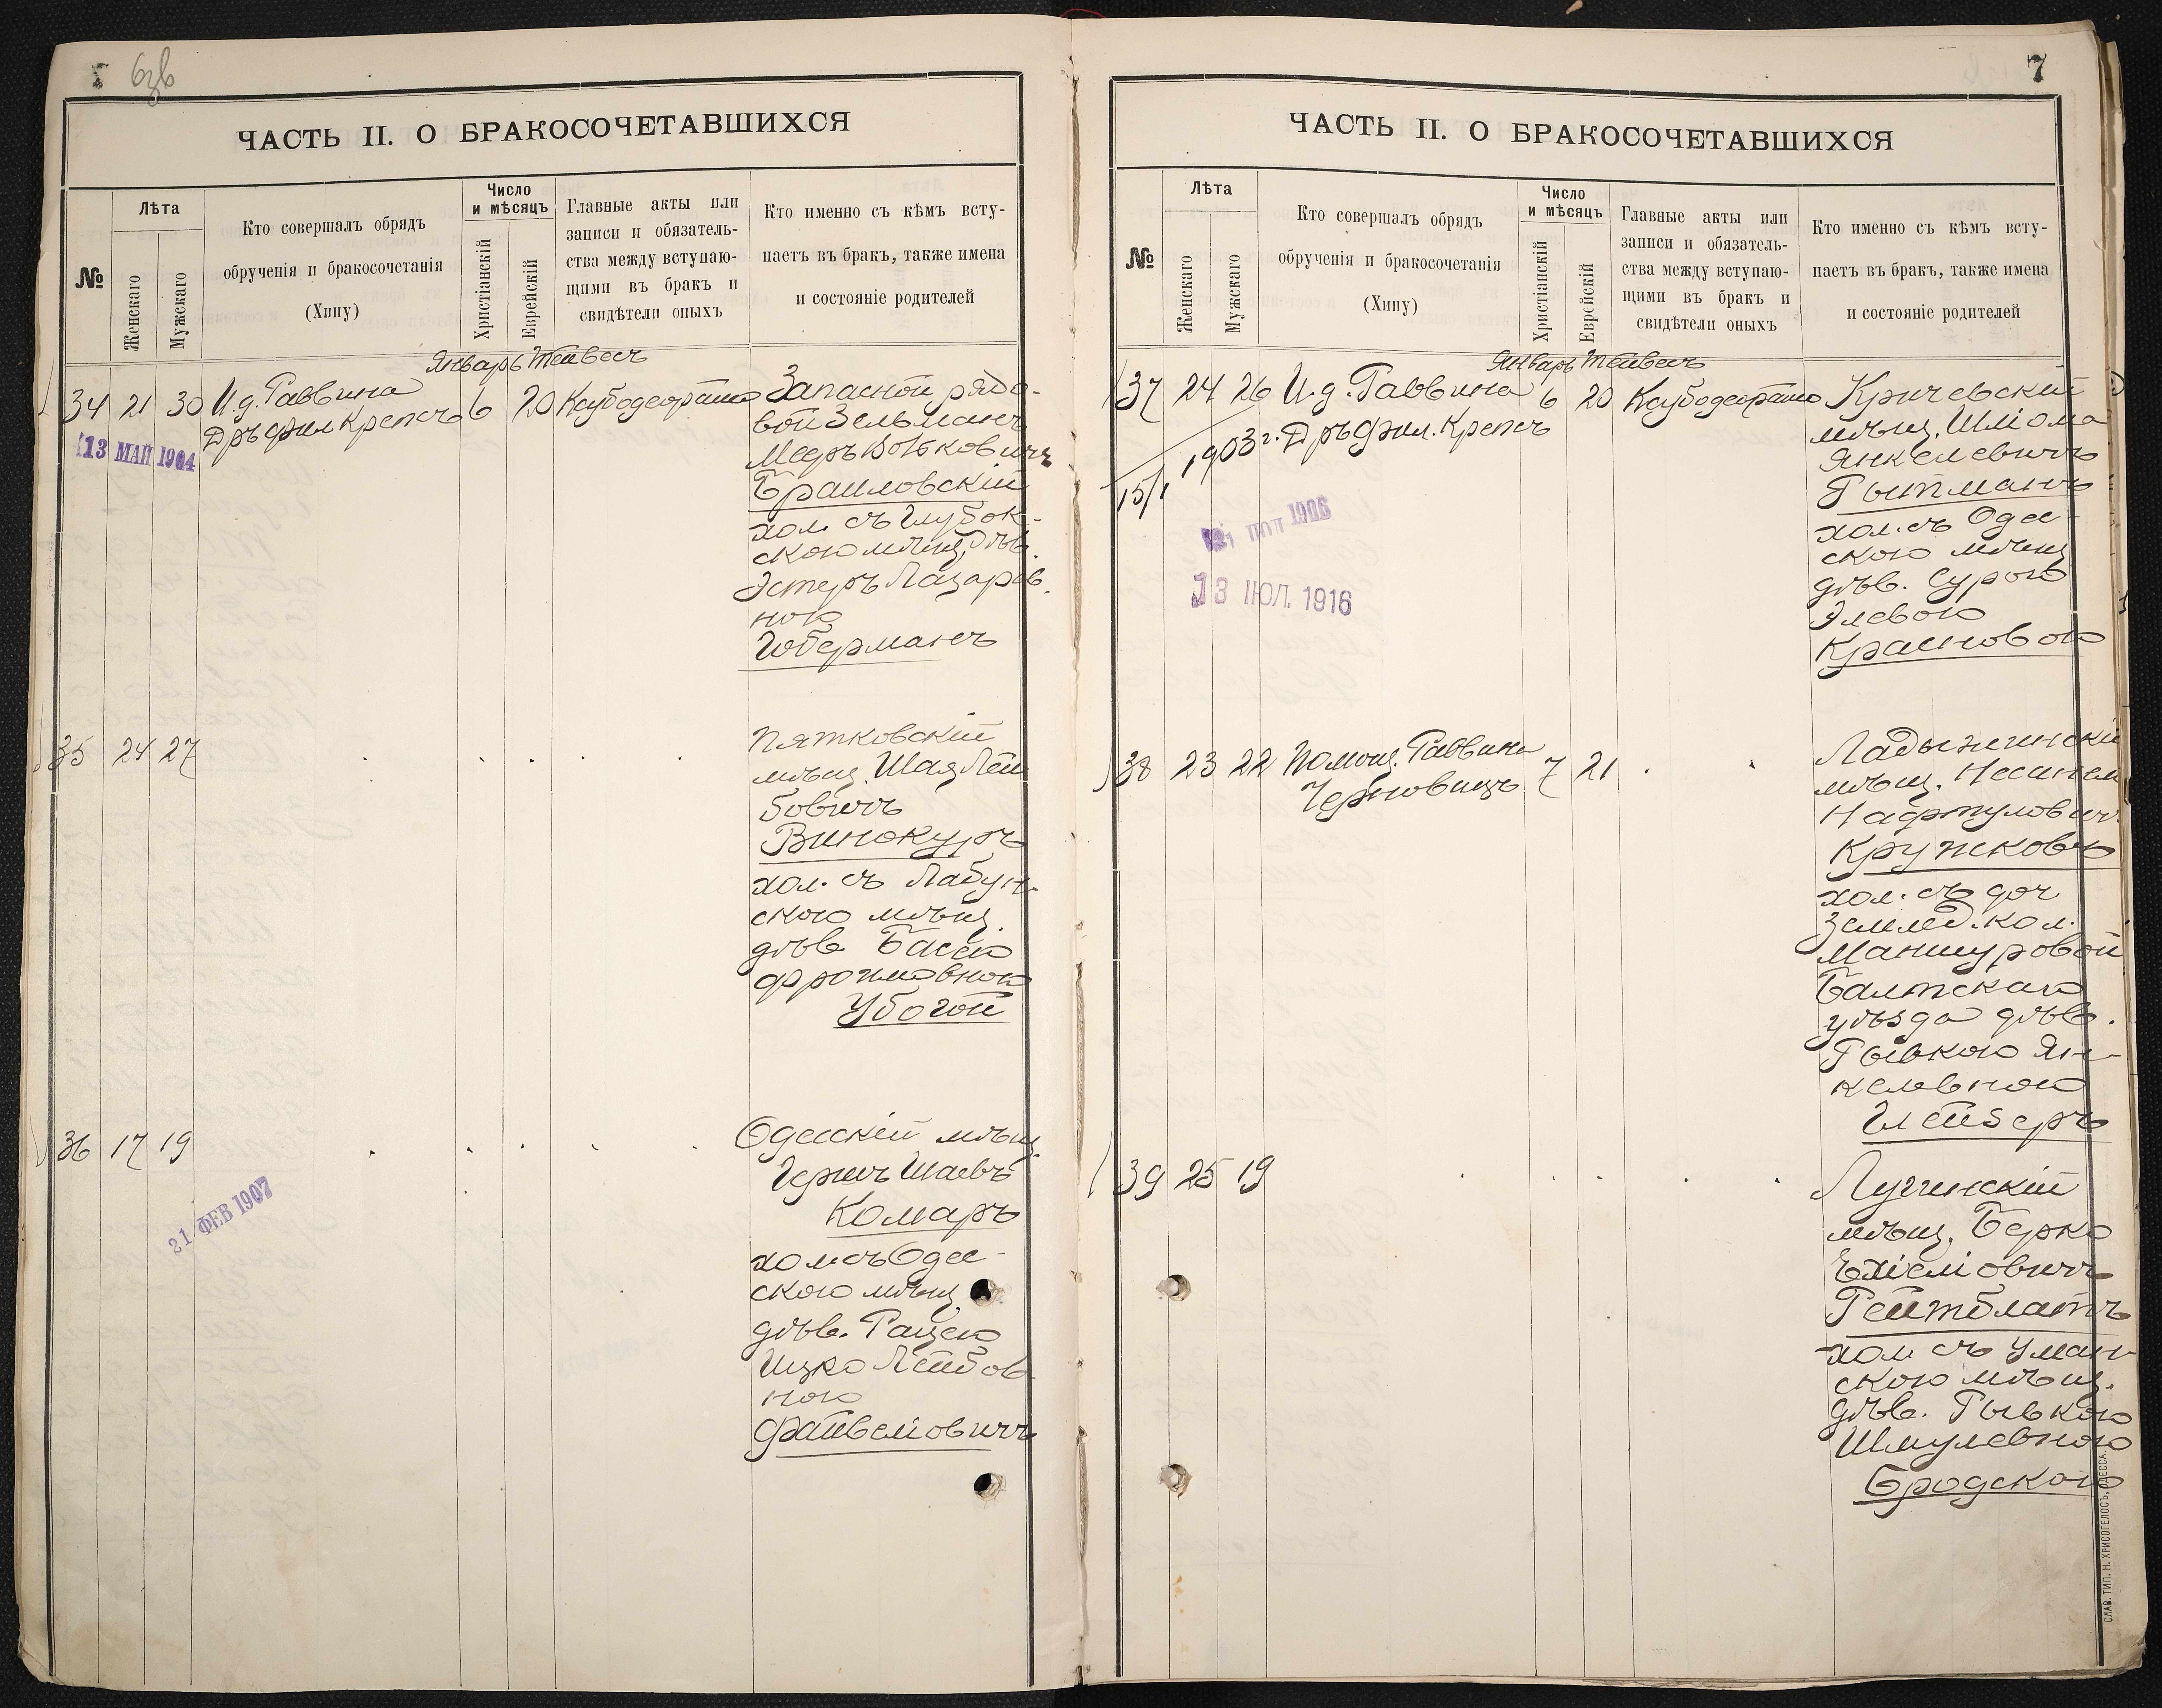 6зв
ЧАСТЬ II. О БРАКОСОЧЕТАВШИХСЯ
№
Лѣта
Женскаго
Мужскаго
Кто совершалъ обрядъ
обрученія и бракосочетанія
(Хипу)
Число
и мѣсяцъ
Христіанскій
Еврейскій
Главные акты или
записи и обязатель-
ства между вступаю-
щими въ бракъ и
свидѣтели оныхъ
Кто именно съ кѣмъ всту-
паетъ въ бракъ, также имена
и состояніе родителей
Январь Тейвесъ
34 21 30 И.д. Раввина 6 20 Ксубодеорашо
Дръ фил Крепсъ
13 МАЙ 1904
Запасной рядо-
вой Зельманъ
Мееръ Вольковичъ
Браиловскій
хол. съ Глубок-
скою мѣщ. дѣв.
Эстеръ Лазаров.
ною
Гоберманъ
35 24 27
Пятковскій
мѣщ. Шая Лей
бовичъ
Винокуръ
хол. съ Лабун-
скою мѣщ.
дѣв. Басею
Фроимовною
Убогой
36 17 19
21 ФЕВ 1907
Одесскій мѣщ.
Гершъ Шаевъ
Комаръ
хол. съ Одес-
скою мѣщ.
дѣв. Рацею
Ицко Лейбов
ною
Файвеліовичъ
7
ЧАСТЬ II. О БРАКОСОЧЕТАВШИХСЯ
№
Лѣта
Женскаго
Мужскаго
Кто совершалъ обрядъ
обрученія и бракосочетанія
(Хипу)
Число
и мѣсяцъ
Христіанскій
Еврейскій
Главные акты или
записи и обязатель-
ства между вступаю-
щими въ бракъ и
свидѣтели оныхъ
Кто именно съ кѣмъ всту-
паетъ въ бракъ, также имена
и состояніе родителей
Январь Тейвесъ
37 24 26 И.д. Раввина 6 20 Ксубодеорашо
Дръ фил. Крепсъ
15/1 1903 г.
1906
13 ІЮЛ. 1916
Кричевскій
мѣщ. Шліома
Янкелевичъ
Гытманъ
хол. съ Одес-
скою мѣщ
дѣв. Сурою
Элевою
Крайновою
38 23 22 Помощ. Раввина 7 21
Черновицъ
Ладыжинскій
мѣщ. Несинем
Нафтулович.
Кружковъ
хол. съ доч
землед. кол.
Маншуровой
Балтскаго
уѣзда дѣв.
Рывкою Ян-
келевною
Глейзеръ
39 25 19
Лугинскій
мѣщ. Берко
Ехіеліовичъ
Рейтблатъ
хол. съ Уман-
скою мѣщ.
дѣв. Рывкою
Шмулевною
Бродскою
СЛАВ. ТИП. Н. ХРИСОГЕЛОСЪ, ОДЕССА.